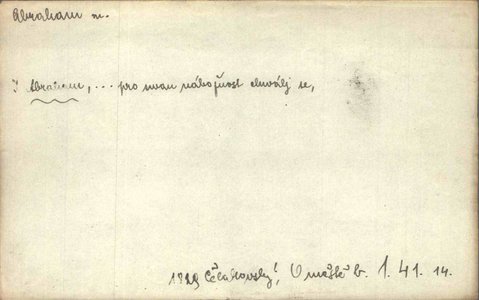 Abraham m.
Abraham, ... pro swau nábožnost chwálj se,
1829 Čelakovský, O městě b. 1. 41. 14.